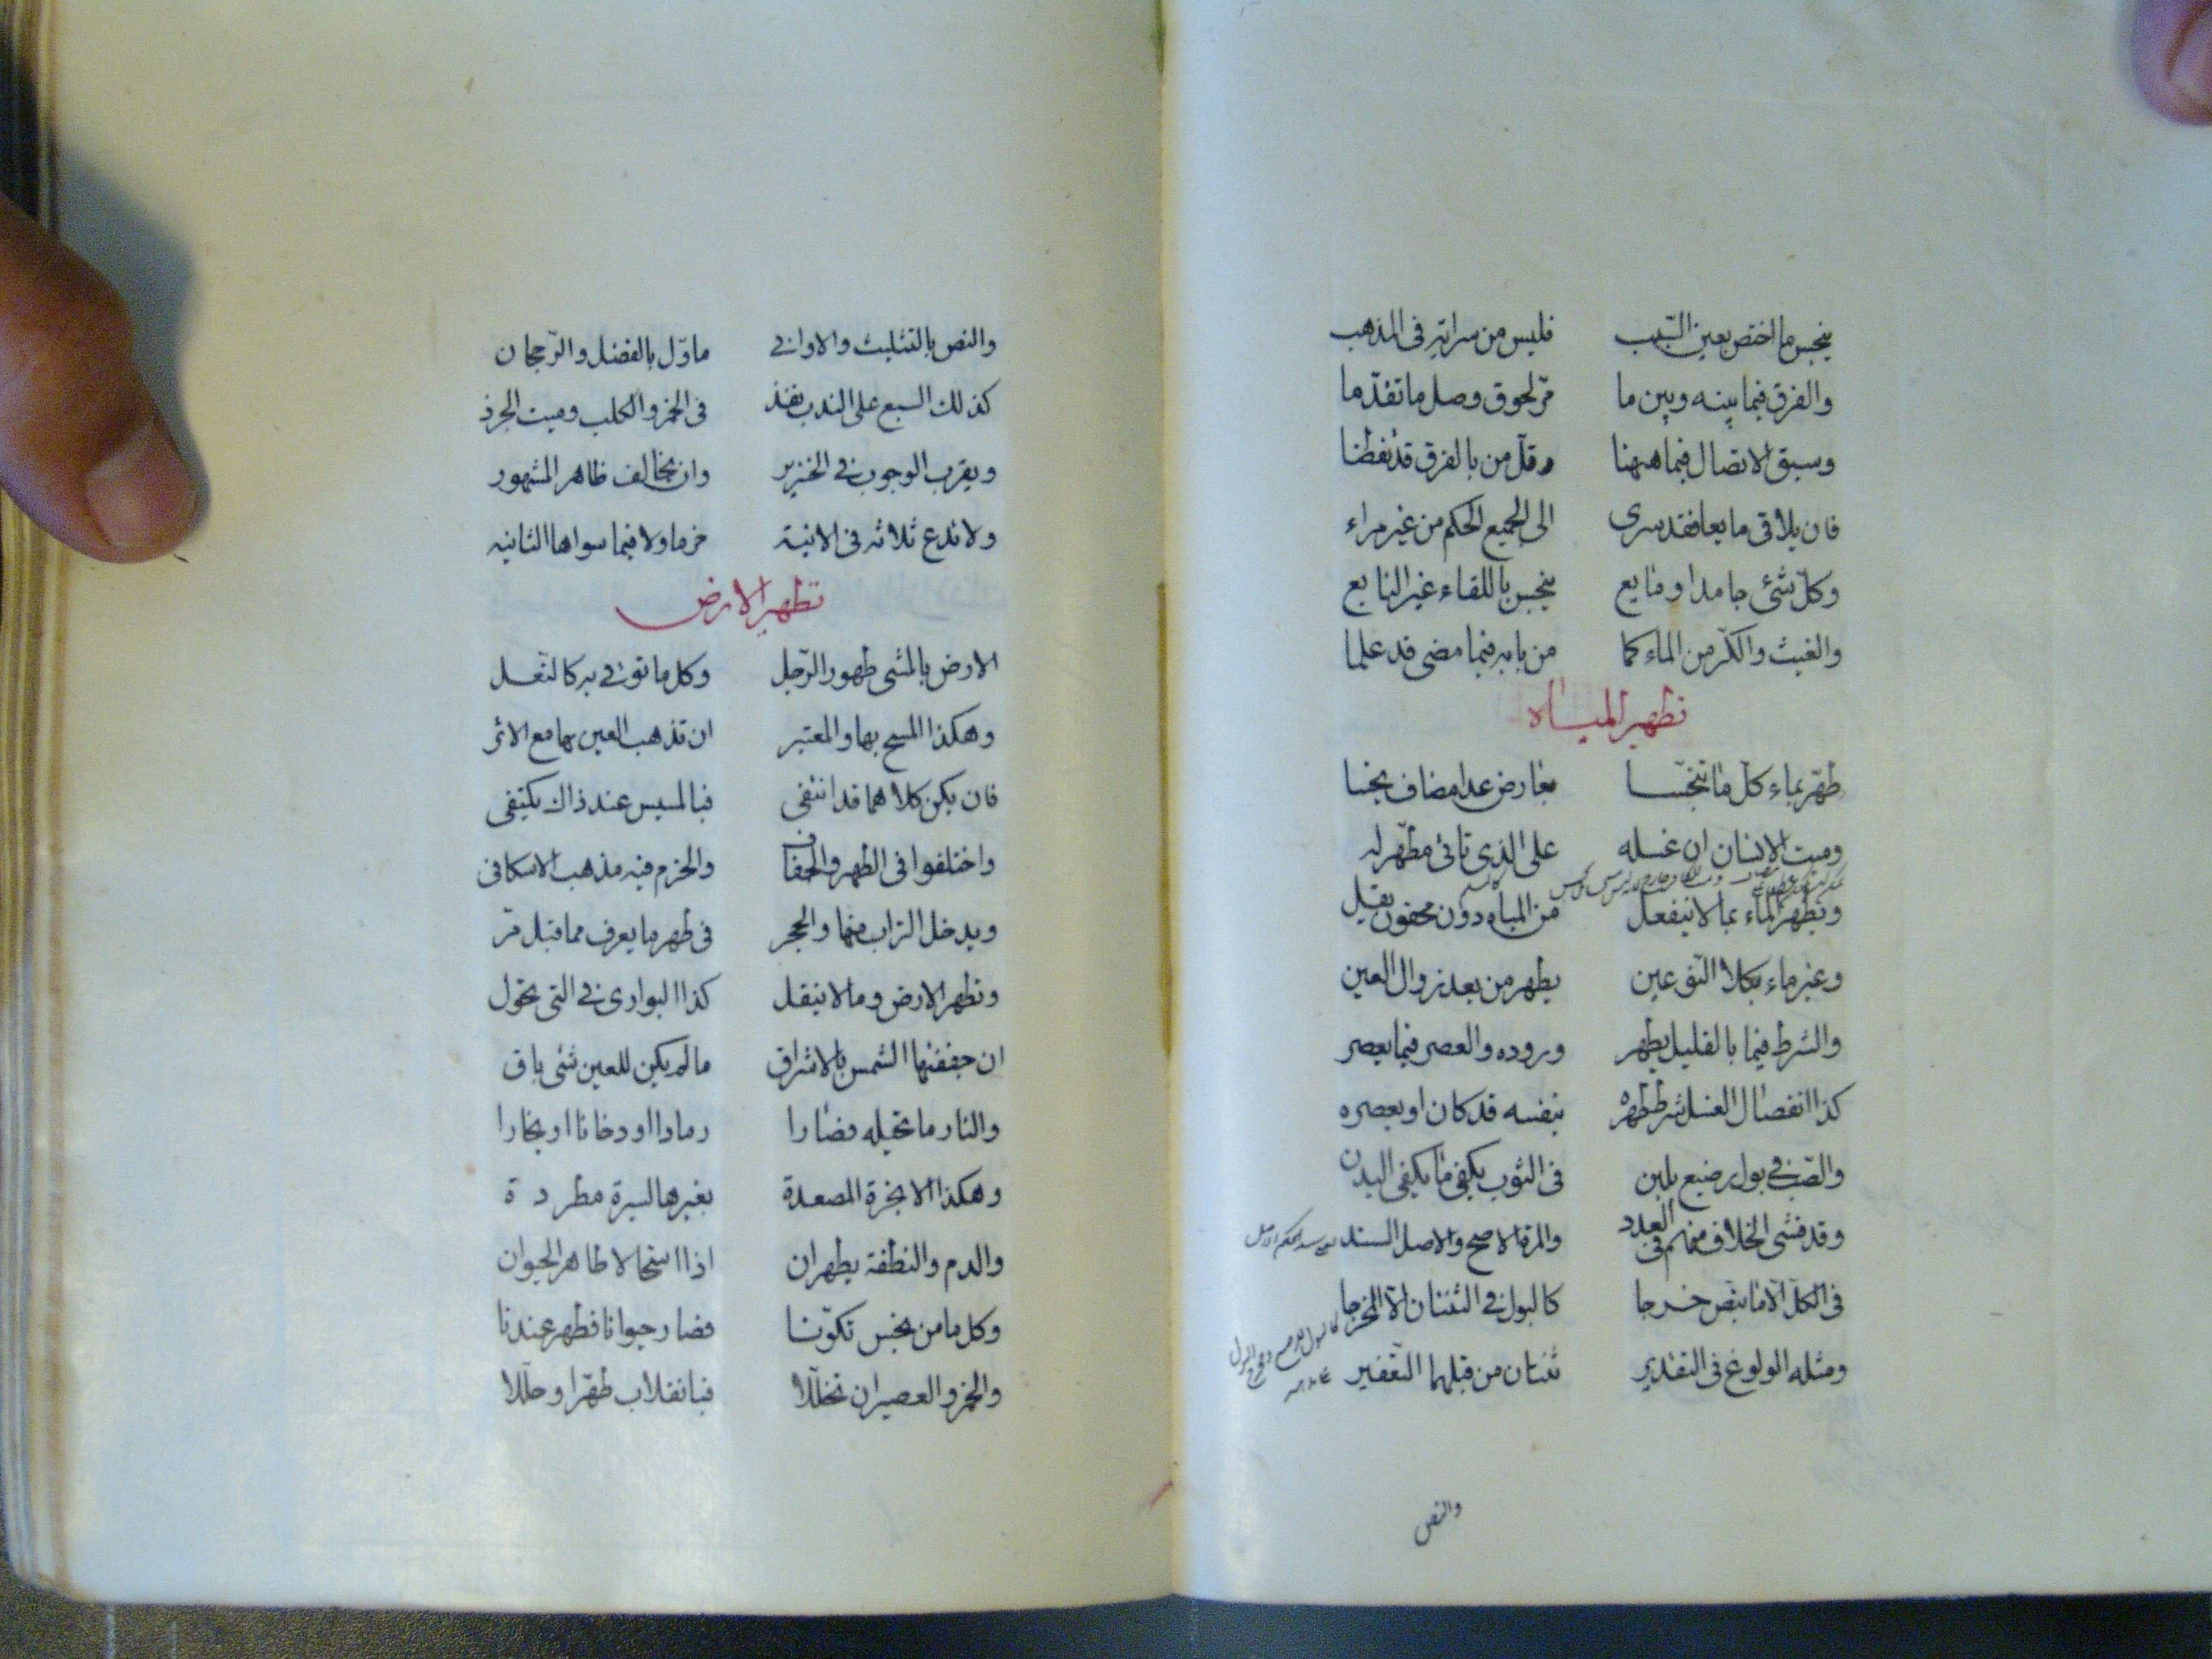 ينجس ما اختص بعين السبب فليس من سراية فى المذهب
والفرق فيما بينه وبين ما مرّ لحوق وصل ما تقدّما
وسبق الاتصال فيما ههنا وقلّ من بالفرق قد تفطنا
فان يلاقى مايعا فقد سرى الى الجميع الحكم من غير مراء
وكلّ شئ جامد او مايع ينجس باللقاء غير النابع
والغيث والكرّ من الماء كما من بابه فيما مضى قد علما
تطهير المياه
طهّر بماء كلّ ما تنجّسا معارض عدا مضاف نجسا
وميت الانسان ان غسله على الذى تاتى مطهّر له
ويطهر الماء بما لا ينفعل من المياه دون محقون يقل
وغير ماء بكلا النّوعين يطهر من بعد زوال العين
والشرط فيما بالقليل يطهر وروده والعصر فيما يعصر
كذا انفصال الغسل شرط طهره بنفسه قد كان او بعصره
والصّب فى بول رضيع بلبن فى الثوب يكفى ما يكفى البدن
وقد فشى الخلاف منهم فى العدد والمرة الاصح والاصل السند
فى الكلّ الّا ما بنصّ خرجا كالبول فى الثنتان الّا المخرجا
ومثله الولوغ فى التقدير ثنتان من قبلهما التّعفير
والنص
والنص بالتثليث والاوانى ماوّل بالفضل والرّجحان
كذلك السبع على الندب نفذ فى الخمر والكلب وميت الجرذ
ويقرب الوجوب فى الخنزير وان يخالف ظاهر المشهور
ولا تدع ثلاثة فى الانية حزما ولا فيما سواها الثانيه
تطهير الارض
الارض بالمشى طهور الرّجل وكل ما توقى به كالنّعل
وهكذا المسح بها والمعتبر ان تذهب العين بها مع الاثر
فان يكن كلاهما قد انتفى فبالمسيس عند ذاك يكتفى
واختلفوا فى الطهر والجفاف والحزم فيه مذهب الاسكافى
ويدخل التراب منها والحجر فى طهر ما يعرف مما قبل مرّ
وتطهر الارض وما لا ينقل كذا البوارى فى التى تحوّل
ان جففتها الشمس بالاشراق ما لم يكن للعين شئ باق
والنار ما تحيله فصارا رمادا او دخانا او بخارا
وهكذا الابخرة المصعدة بغيرها لسيرة مطردة
والدم والنطفة يطهران اذا استحالا طاهر الحيوان
وكل ما من نجس تكوّنا فصار حيوانا فطهر عندنا
والخمر والعصير ان تخلّلا فبانقلاب طهّرا وحلّلا